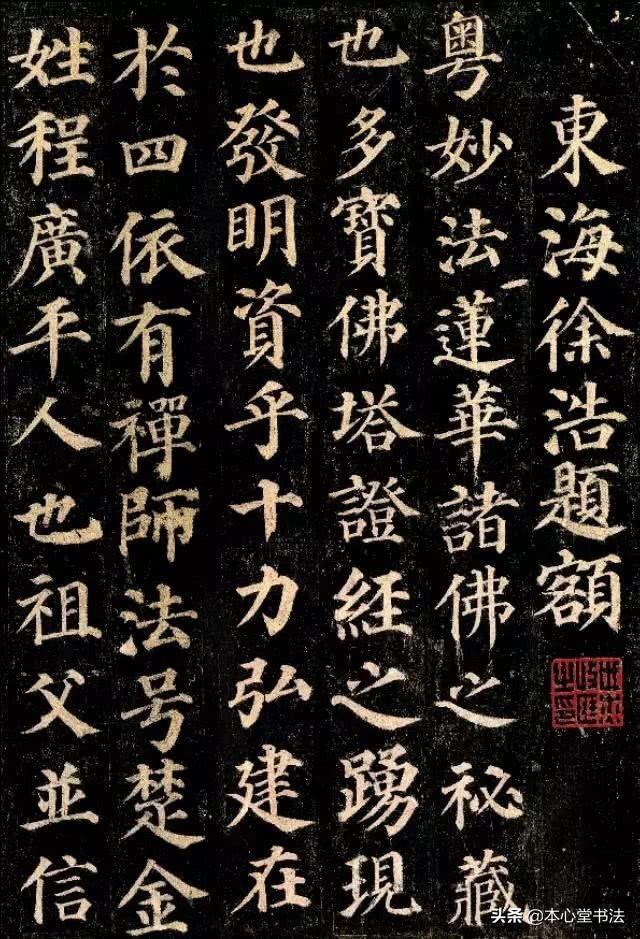 東海徐浩題額
粤妙法蓮華諸佛之秘藏
也多寶佛塔證經之踴現
也發明資乎十力弘建在
於四依有禪師法号楚金
姓程廣平人也祖父並信
头条@本心堂书法